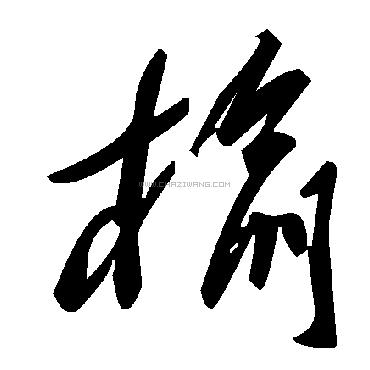 榆
WWW.CHAZIWANG.COM